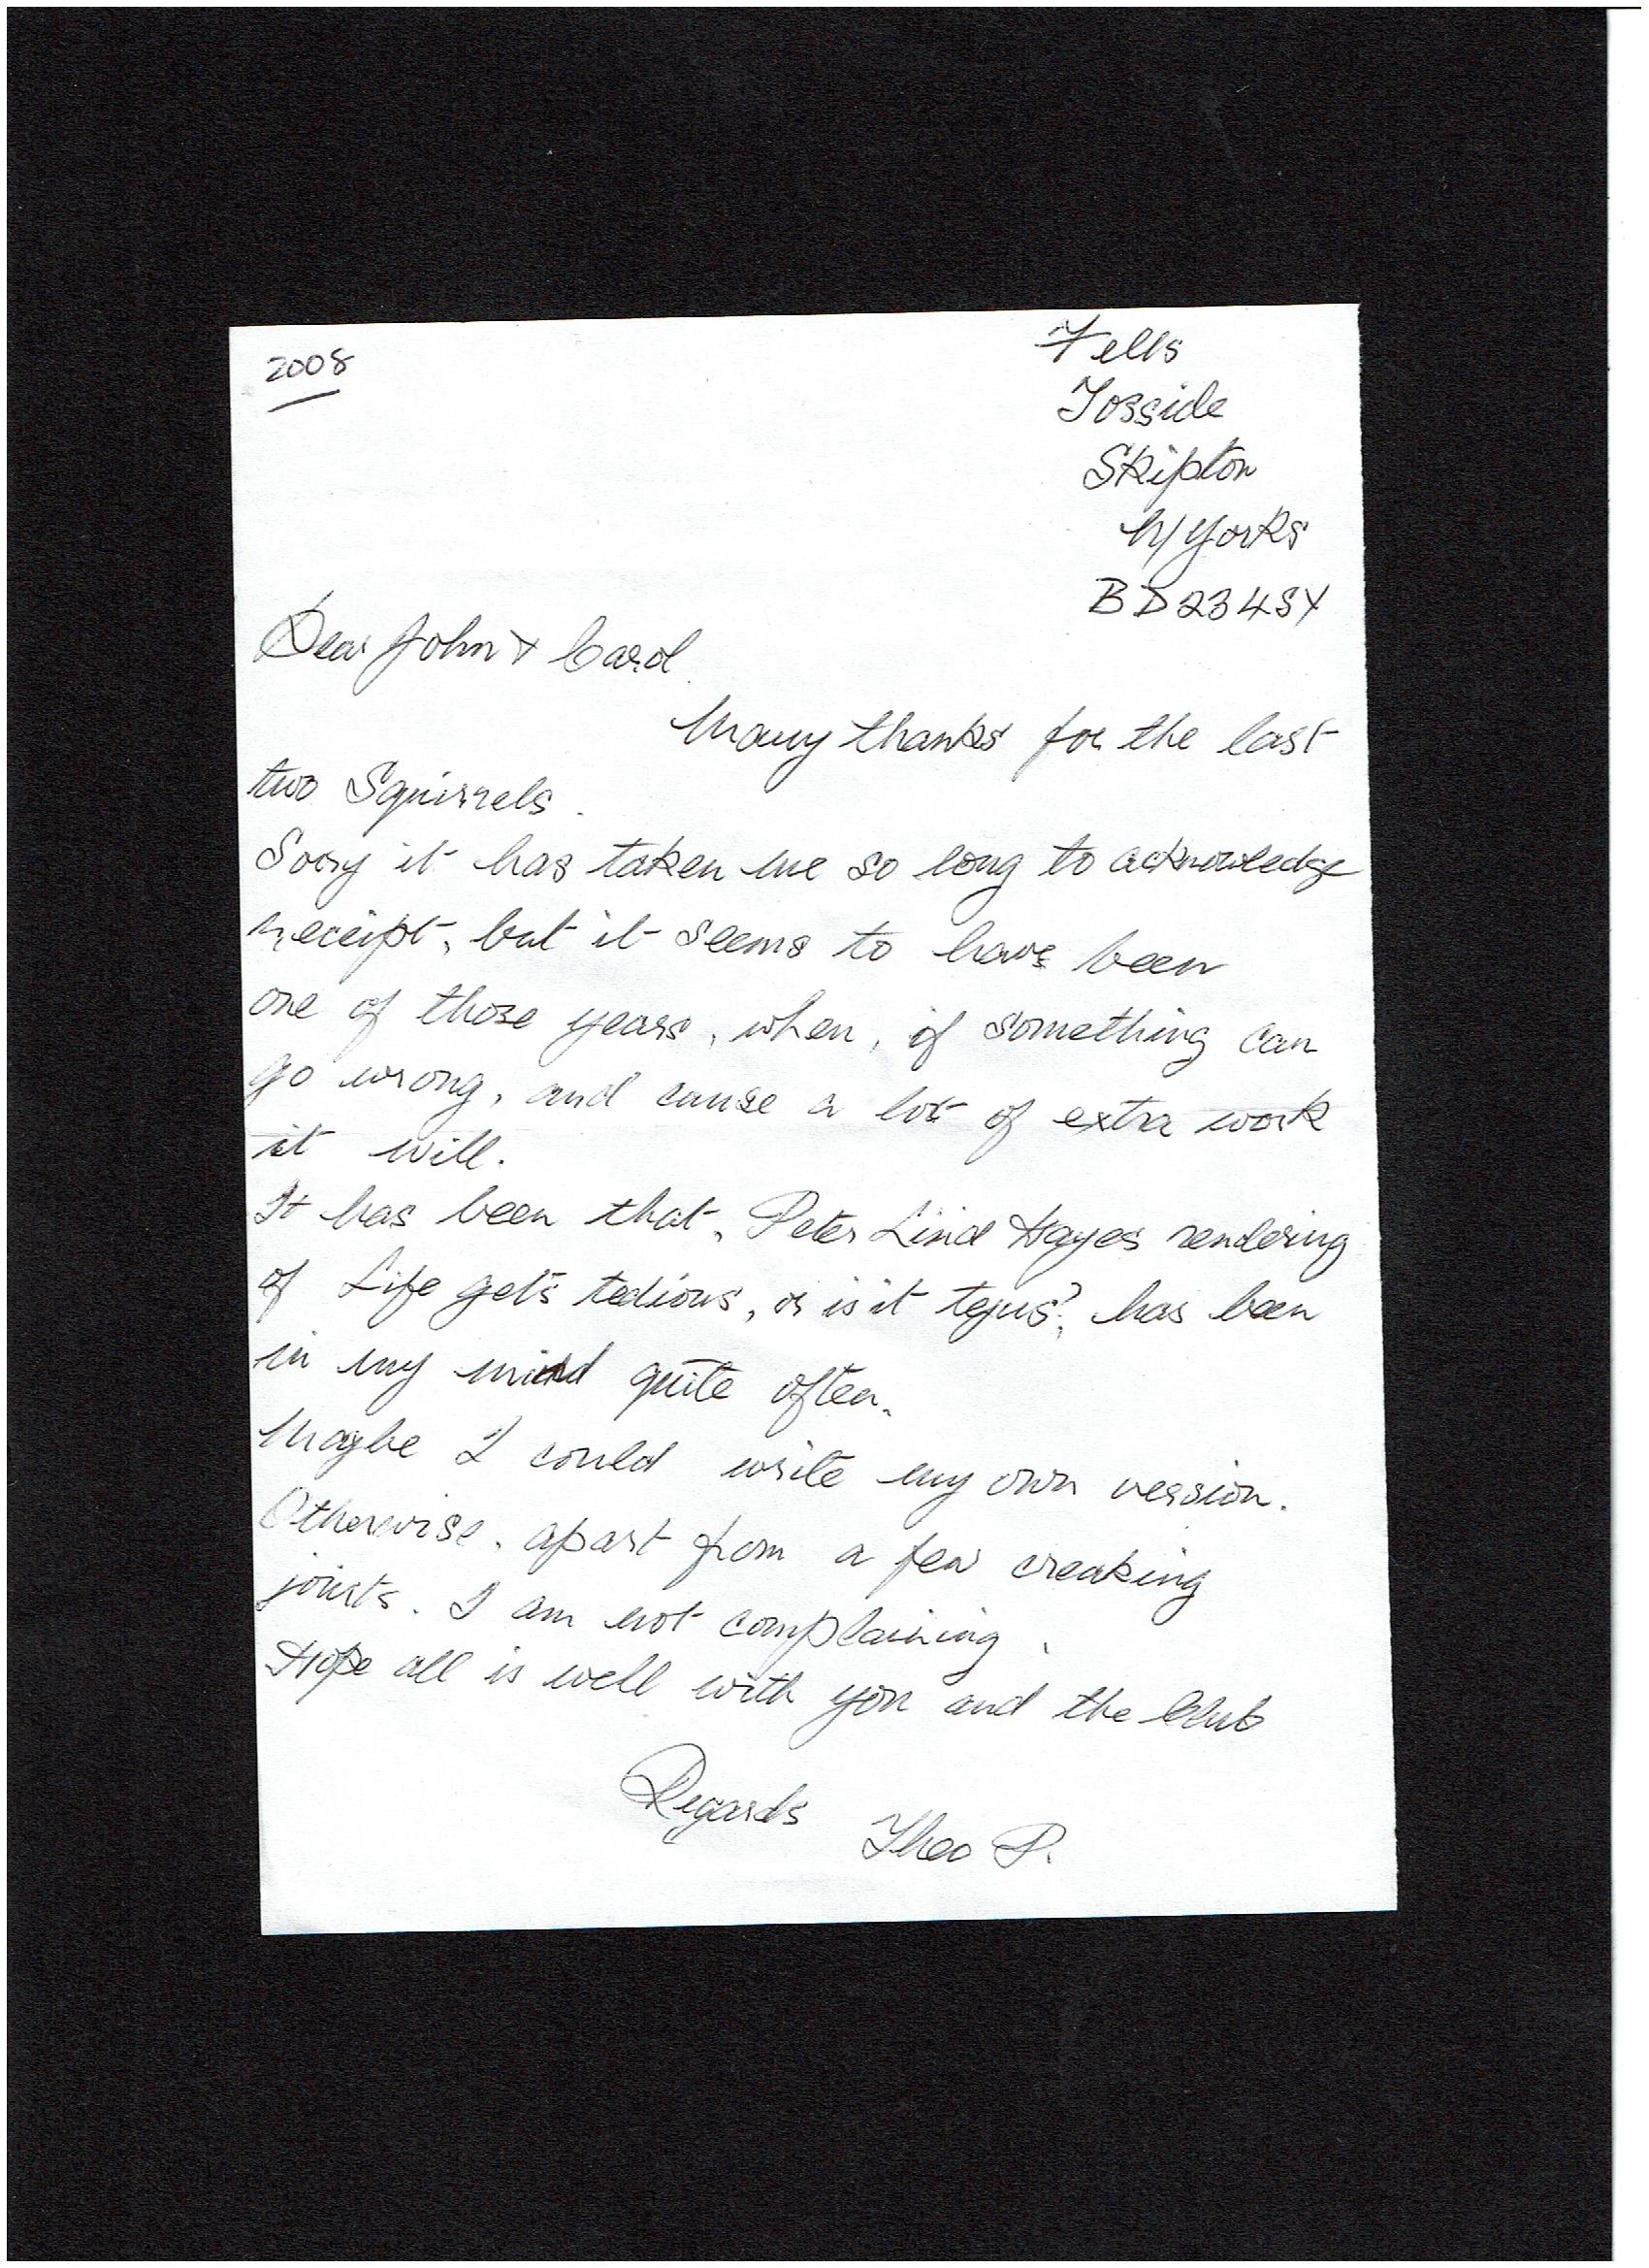 2008
Fells
Tosside
Skipton
N/Yorks
BD234SY
Dear John & Carol
Many thanks for the last
two Squirrels.
Sorry it has taken me so long to acknowledge
receipt, but it seems to have been
one of those years, when, if something can
go wrong, and cause a lot of extra work
it will.
It has been that, Peter Lind Hayes rendering
of Life gets tedious, or is it tejus?, has been
in my mind quite often.
Maybe I could write my own version.
Otherwise, apart from a few creaking
joints. I am not complaining.
Hope all is well with you and the Club
Regards Theo P.